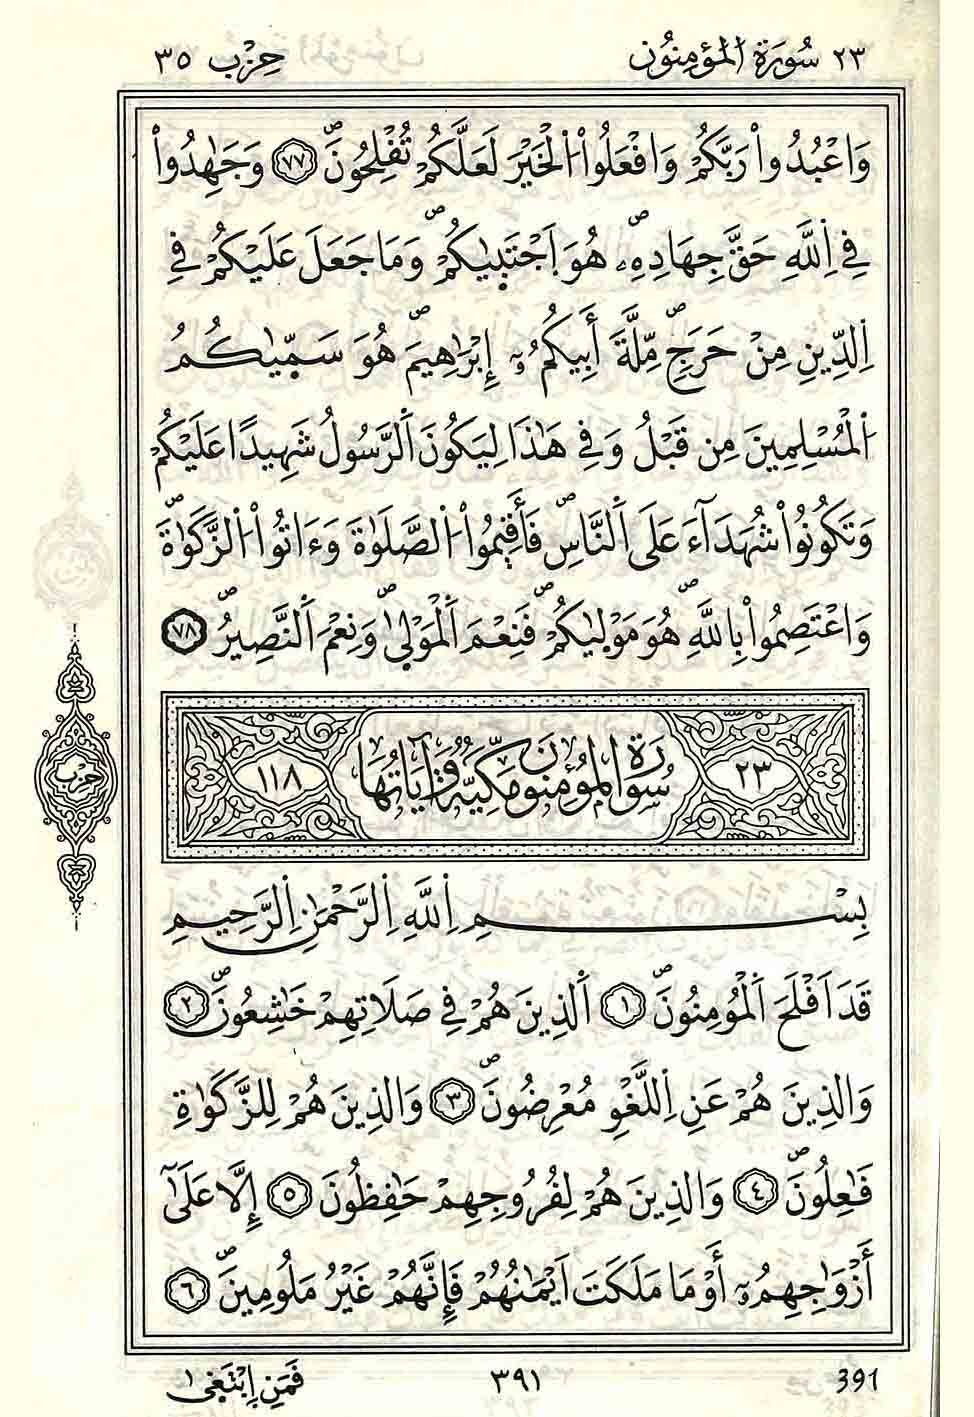 ٢٣ سُورَةُ الْمُؤْمِنُونَ حِزْب ٣٥
وَاعْبُدُواْ رَبَّكُمْ وَافْعَلُواْ الْخَيْرَ لَعَلَّكُمْ تُفْلِحُونَۖ ٧٧ وَجَٰهِدُواْ
فِے اِللَّهِ حَقَّ جِهَادِهِۦۖ هُوَ اَجْتَبٜيٰكُمْۖ وَمَا جَعَلَ عَلَيْكُمْ فِے
اِلدِّينِ مِنْ حَرَجٖۖ مِّلَّةَ أَبِيكُمُۥٓ إِبْرَٰهِيمَۖ هُوَ سَمّٜيٰكُمُ
اُلْمُسْلِمِينَ مِن قَبْلُ وَفِے هَٰذَا لِيَكُونَ اَلرَّسُولُ شَهِيدًا عَلَيْكُمْ
وَتَكُونُواْ شُهَدَآءَ عَلَى اَلنَّاسِۖ فَأَقِيمُواْ الصَّلَوٰةَ وَءَاتُواْ الزَّكَوٰةَۖ
وَاعْتَصِمُواْ بِاللَّهِۖ هُوَ مَوْلٜيٰكُمْۖ فَنِعْمَ اَلْمَوْلٜيٰۖ وَنِعْمَ اَلنَّصِيرُۖ ٧٨
٢٣ سُورَةُ الْمُؤْمِنُونَ مَكِّيَّة وَآيَاتُهَا ١١٨
حزب
بِسْمِ اِللَّهِ اِلرَّحْمَٰنِ اِلرَّحِيمِ
قَدَ اَفْلَحَ اَلْمُؤْمِنُونَۖ ١ اَلذِينَ هُمْ فِے صَلَاتِهِمْ خَٰشِعُونَۖ ٢
وَالذِينَ هُمْ عَنِ اِللَّغْوِ مُعْرِضُونَۖ ٣ وَالذِينَ هُمْ لِلزَّكَوٰةِ
فَٰعِلُونَۖ ٤ وَالذِينَ هُمْ لِفُرُوجِهِمْ حَٰفِظُونَ ٥ إِلَّا عَلَىٰٓ
أَزْوَٰجِهِمُۥٓ أَوْ مَا مَلَكَتَ اَيْمَٰنُهُمْ فَإِنَّهُمْ غَيْرُ مَلُومِينَۖ ٦
391 ٣٩١ فَمَنِ اِبْتَغٜيٰ